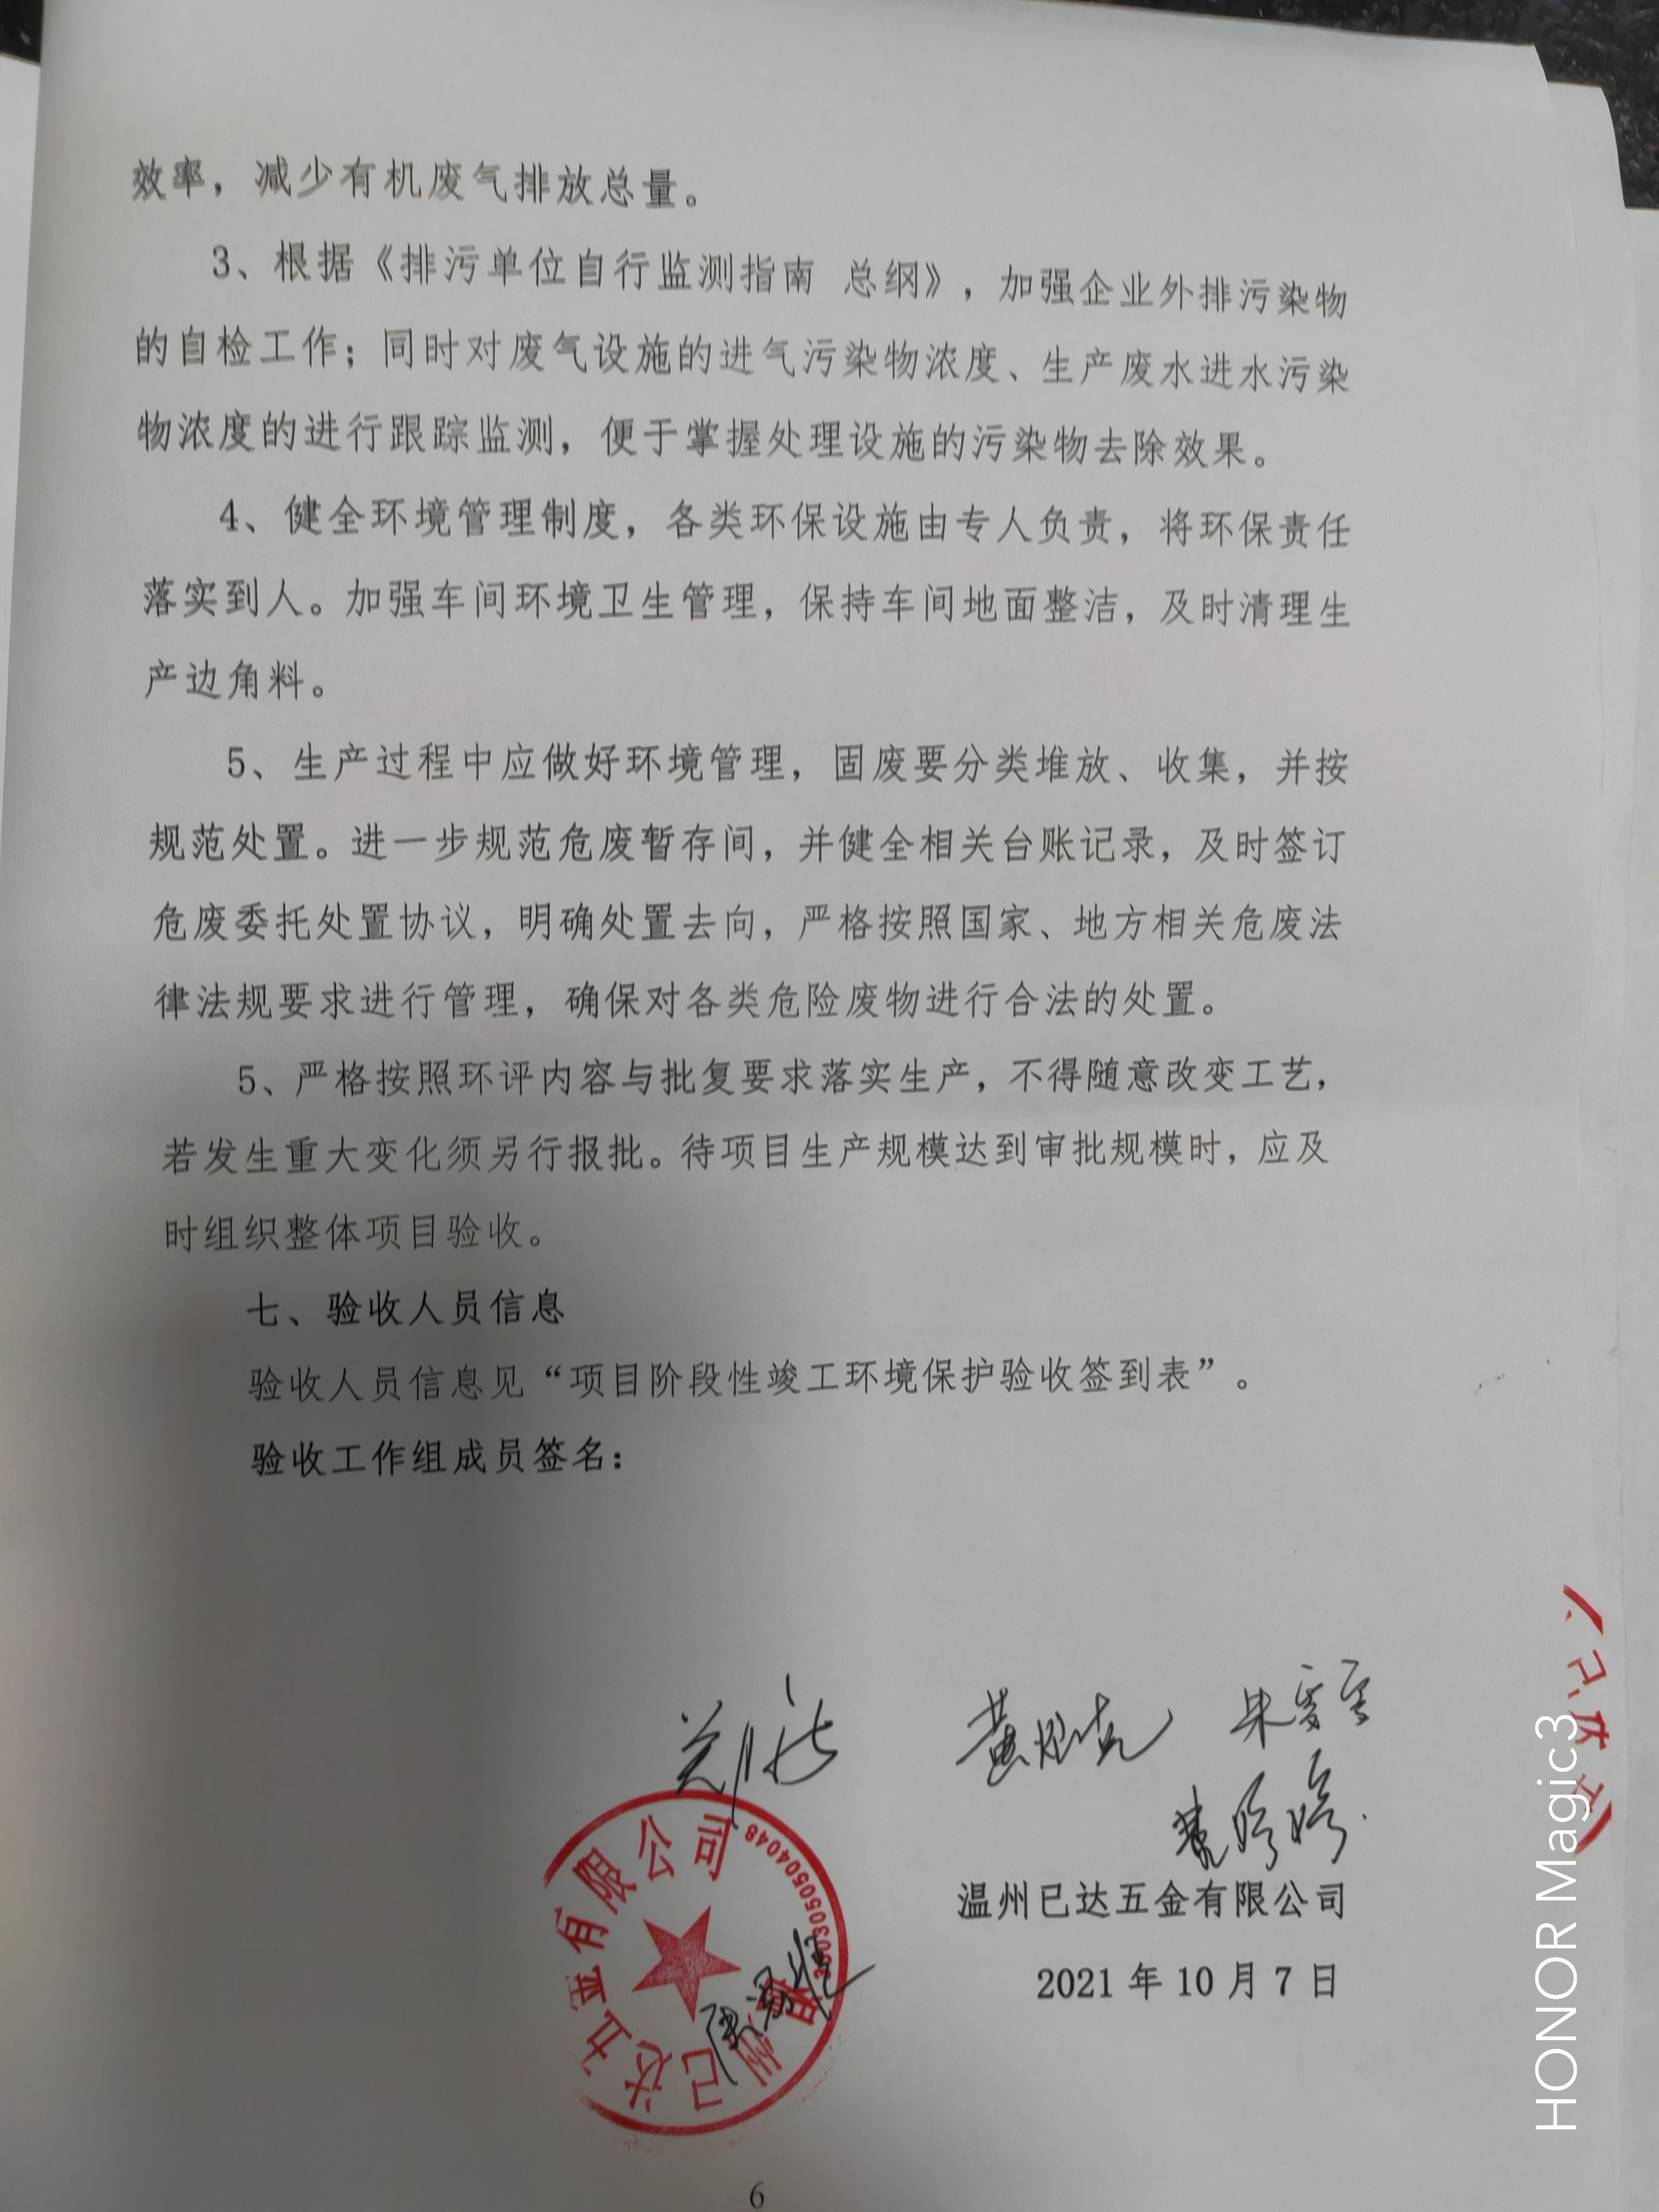 效率，减少有机废气排放总量。
3、根据《排污单位自行监测指南 总纲》，加强企业外排污染物
的自检工作；同时对废气设施的进气污染物浓度、生产废水进水污染
物浓度的进行跟踪监测，便于掌握处理设施的污染物去除效果。
4、健全环境管理制度，各类环保设施由专人负责，将环保责任
落实到人。加强车间环境卫生管理，保持车间地面整洁，及时清理生
产边角料。
5、生产过程中应做好环境管理，固废要分类堆放、收集，并按
规范处置。进一步规范危废暂存间，并健全相关台账记录，及时签订
危废委托处置协议，明确处置去向，严格按照国家、地方相关危废法
律法规要求进行管理，确保对各类危险废物进行合法的处置。
5、严格按照环评内容与批复要求落实生产，不得随意改变工艺，
若发生重大变化须另行报批。待项目生产规模达到审批规模时，应及
时组织整体项目验收。
七、验收人员信息
验收人员信息见“项目阶段性竣工环境保护验收签到表”。
验收工作组成员签名：
州已达五金有限公司
温州已达五金有限公司
2021 年 10 月 7 日
6
HONOR Magic3